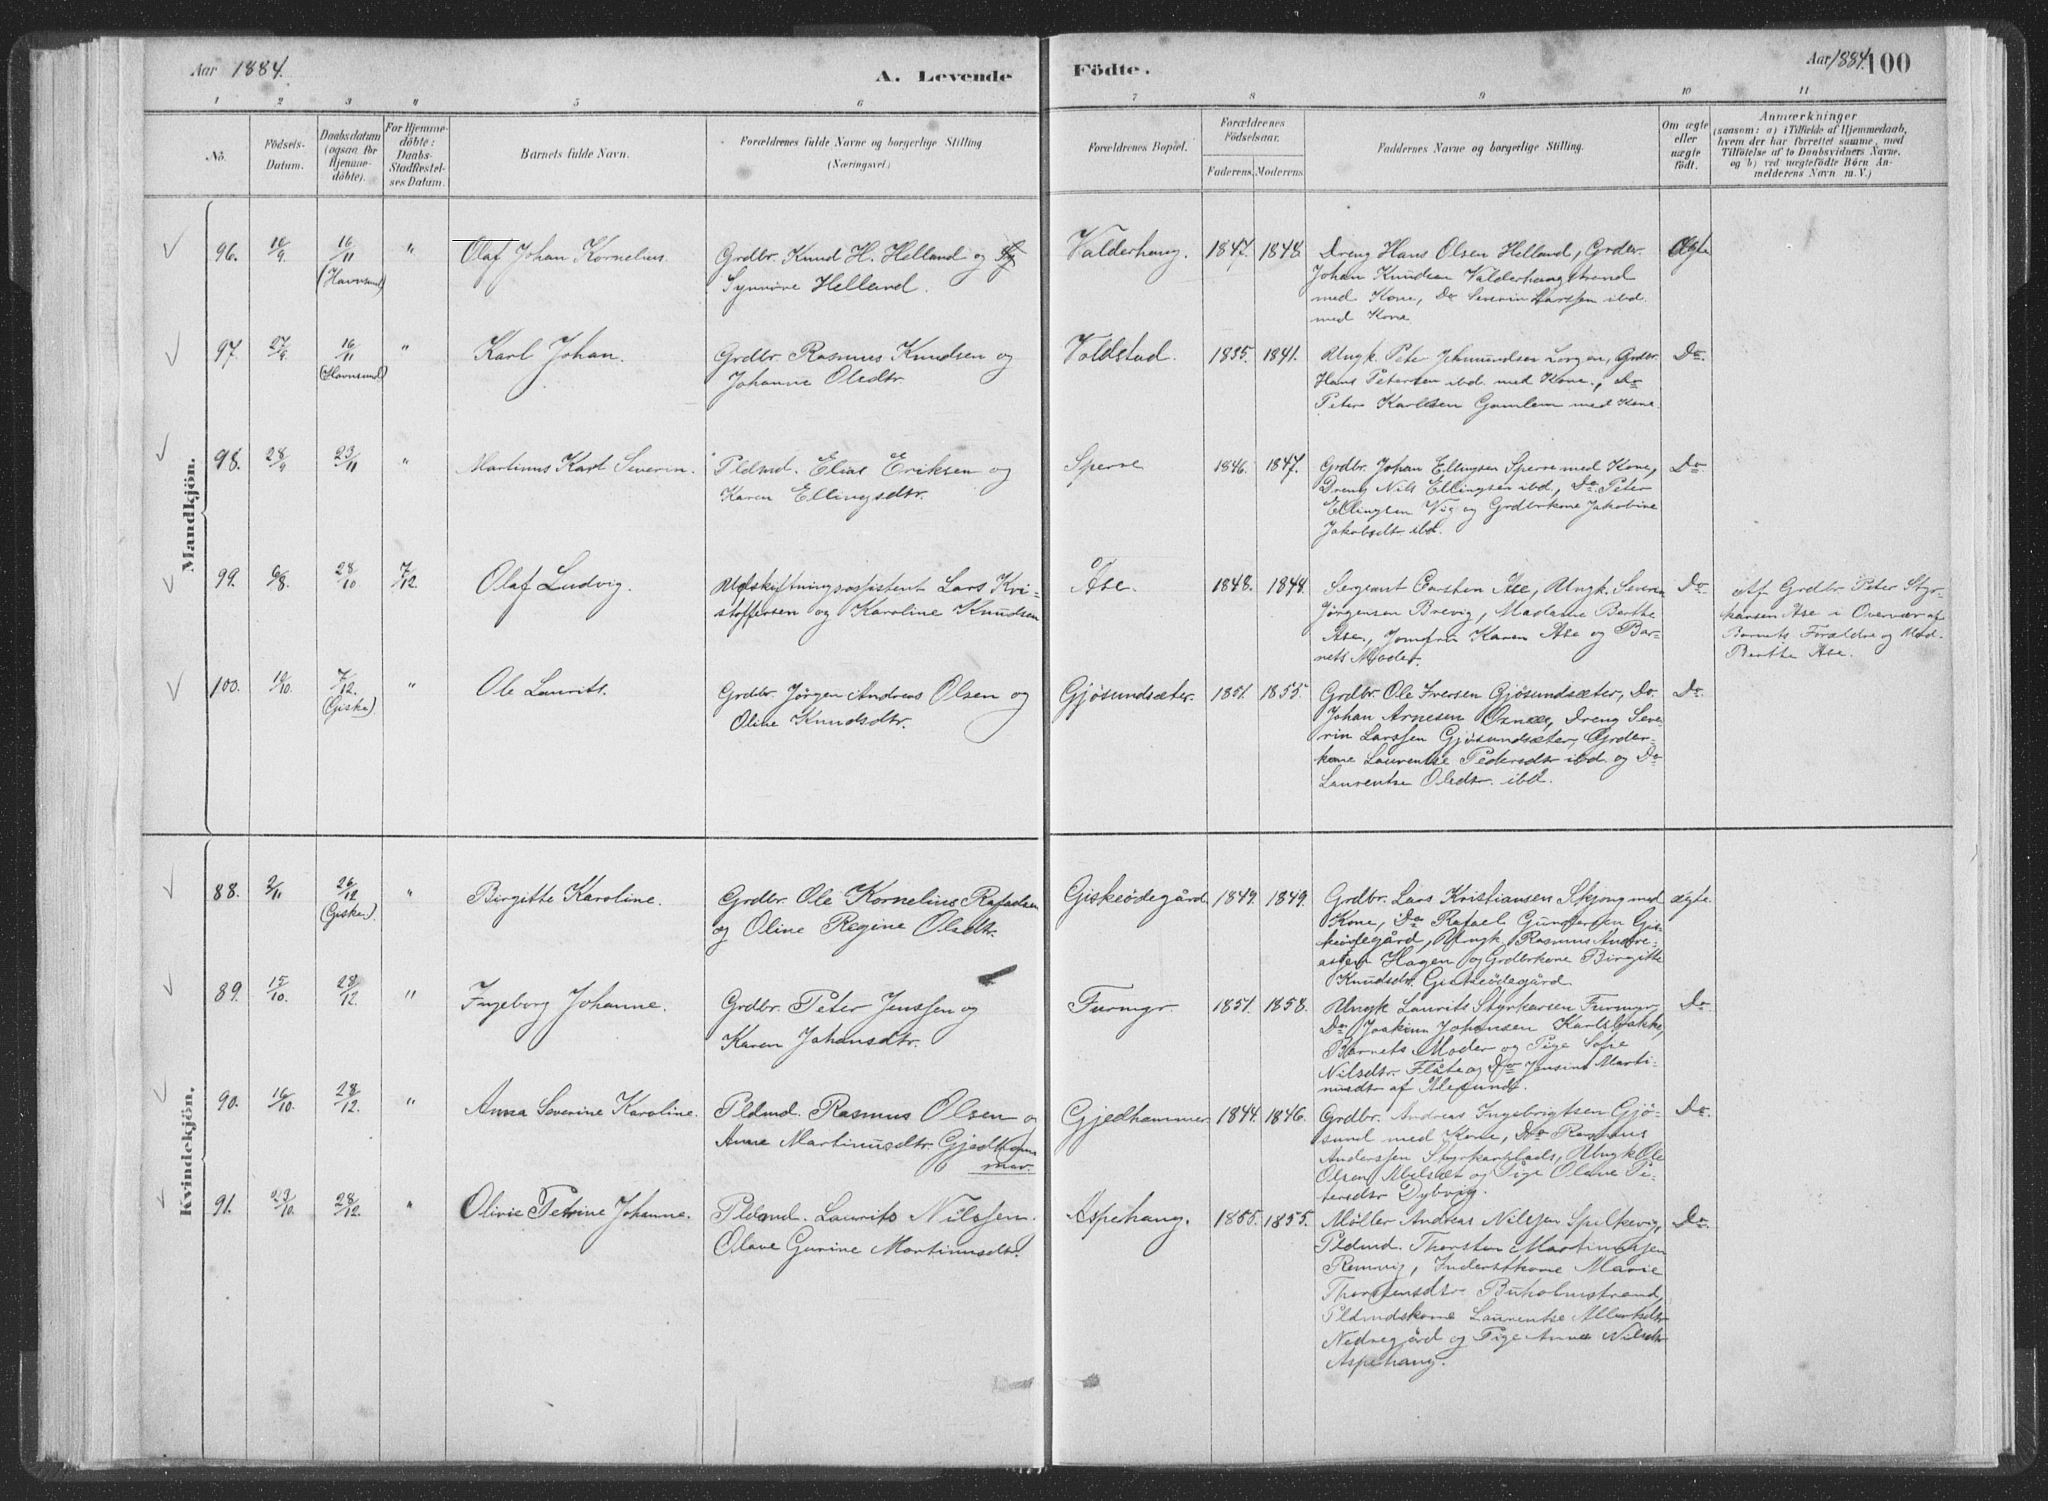 Aar 1884.
A. Levende
Födte.
Aar 1884. 100
1 2 3 4 5 6 7 8 9 10 11
No.
Födsels-
Datum.
Daabsdatum
(ogsaa for
Hjemme-
döbte).
For Hjemme-
döbte:
Daabs-
Stadfæstel-
ses Datum.
Barnets fulde Navn.
Forældrenes fulde Navne og borgerlige Stilling
(Næringsvei.)
Forældrenes Bopæl.
Forældrenes
Födselsaar.
Faderens. Moderens.
Faddernes Navne og borgerlige Stilling.
Om ægte
eller
uægte
födt.
Anmærkninger
(saasom: a) i Tilfælde af Hjemmedaab,
hvem der har forrettet samme, med
Tilföielse af to Daabsvidners Navne,
og b) ved uægtefödte Börn An-
melderens Navn m. V.)
Mandkjön.
96. 10/9 16/11 (Havnsund) " Olaf Johan Kornelius. Grdbr. Knud H. Helland og
Synnöve Helland.
Valderhaug. 1847. 1848. Dreng Hans Olsen Helland, Grdbr. Ægte
Johan Knudsen Valderhaugstrand
med Kone, Do Severin Larssen ibd.
med Kone
97. 27/9 16/11 (Havnsund) " Karl Johan. Grdbr. Rasmus Knudsen og
Johanne Olsdtr.
Voldstad. 1835. 1841. Ungk. Peter Jetmundsen Lorgen, Grdbr. Do.
Hans Petersen ibd. med Kone, Do
Peter Karlsen Gamlem med Kone.
98. 28/9 23/11 " Martinus Karl Severin. Pldmd. Elias Eriksen og
Karen Ellingsdtr.
Sperre 1846. 1847. Grdbr. Johan Ellingsen Sperre med Kone, Do
Dreng Nils Ellingsen ibd., Do. Peter
Ellingsen Vig og Grdbrkone Jakobine
Jakobsdtr ibd.
99. 6/8. 28/10 7/12. Olaf Ludvig. Udskiftningsassistent Lars Kri-
stoffersen og Karoline Knudsen
Åse. 1848. 1848. Sergeant Carsten Åse, Ungk. Severin Do.
Jörgensen Brevig, Madame Berthe
Åse, Jomfru Karen Åse og Bar-
nets Moder.
Af Grdbr Peter Styr-
kersen Åse i Overvær af
Barnets Forældre og Mad.
Berthe Åse.
100. 19/10. 7/12. (Giske) " Ole Laurits. Grdbr. Jörgen Andreas Olsen og
Oline Knudsdtr.
Gjösundsæter. 1851. 1855. Grdbr Ole Iversen Gjösundsæter, Do. Do.
Johan Arnesen Oxnes, Dreng Seve-
rin Larssen Gjösundsæter, Grdbr-
kone Laurentse Pedersdtr ibd. og Do
Laurentse Olsdtr. ibd.
Kvindekjön.
88. 2/11 26/12 (Giske). " Birgitte Karoline. Grdbr. Ole Kornelius Rafaelsen
og Oline Regine Olsdtr.
Giskeödegård 1849. 1849. Grdbr. Lars Kristiansen Skjong med ægte.
Kone, Do Rafael Gundersen Gis-
keödegård, Ungk. Rasmus Andre-
assen Hagen og Grdbrkone Birgitte
Knudsdtr. Giskeödegård.
89. 15/10. 28/12. " Ingeborg Johanne. Grdbr. Peter Jenssen og
Karen Johansdtr.
Furmyr. 1851. 1858. Ungk Laurits Styrkersen Furmyr, Do
Do Joakim Johansen Karlsbakke,
Barnets Moder og Pige Sofie
Nilsdtr. Flåte og Do Jensine Marti-
nusdtr af Ålesund.
90. 16/10. 28/12. " Anna Severine Karoline. Pldmd. Rasmus Olsen og
Anne Martinusdtr. Gjedham-
mer.
Gjedhammer 1844. 1846. Grdbr. Andreas Ingebrigtsen Gjö- Do.
sund med Kone, Do Rasmus
Anderssen, Ungk Ole
Olsen og Pige Olave Pe-
tersdtr Dybvig.
91. 23/10. 28/12. " Olivie Petrine Johanne. Pldmd. Laurits Nilssen.
Olave Gurine Martinusdtr.
Aspehaug. 1855. 1855. Möller Andreas Nilssen Spjelkevig, Do.
Pldmd. Thorsten Martinussen
Remvig, Inderstkone Marie
Thorstensdtr Buholmstrand,
Pldmdskone Laurentse Albertsdtr
Nedregård og Pige Anne Nilsdtr
Aspehaug.